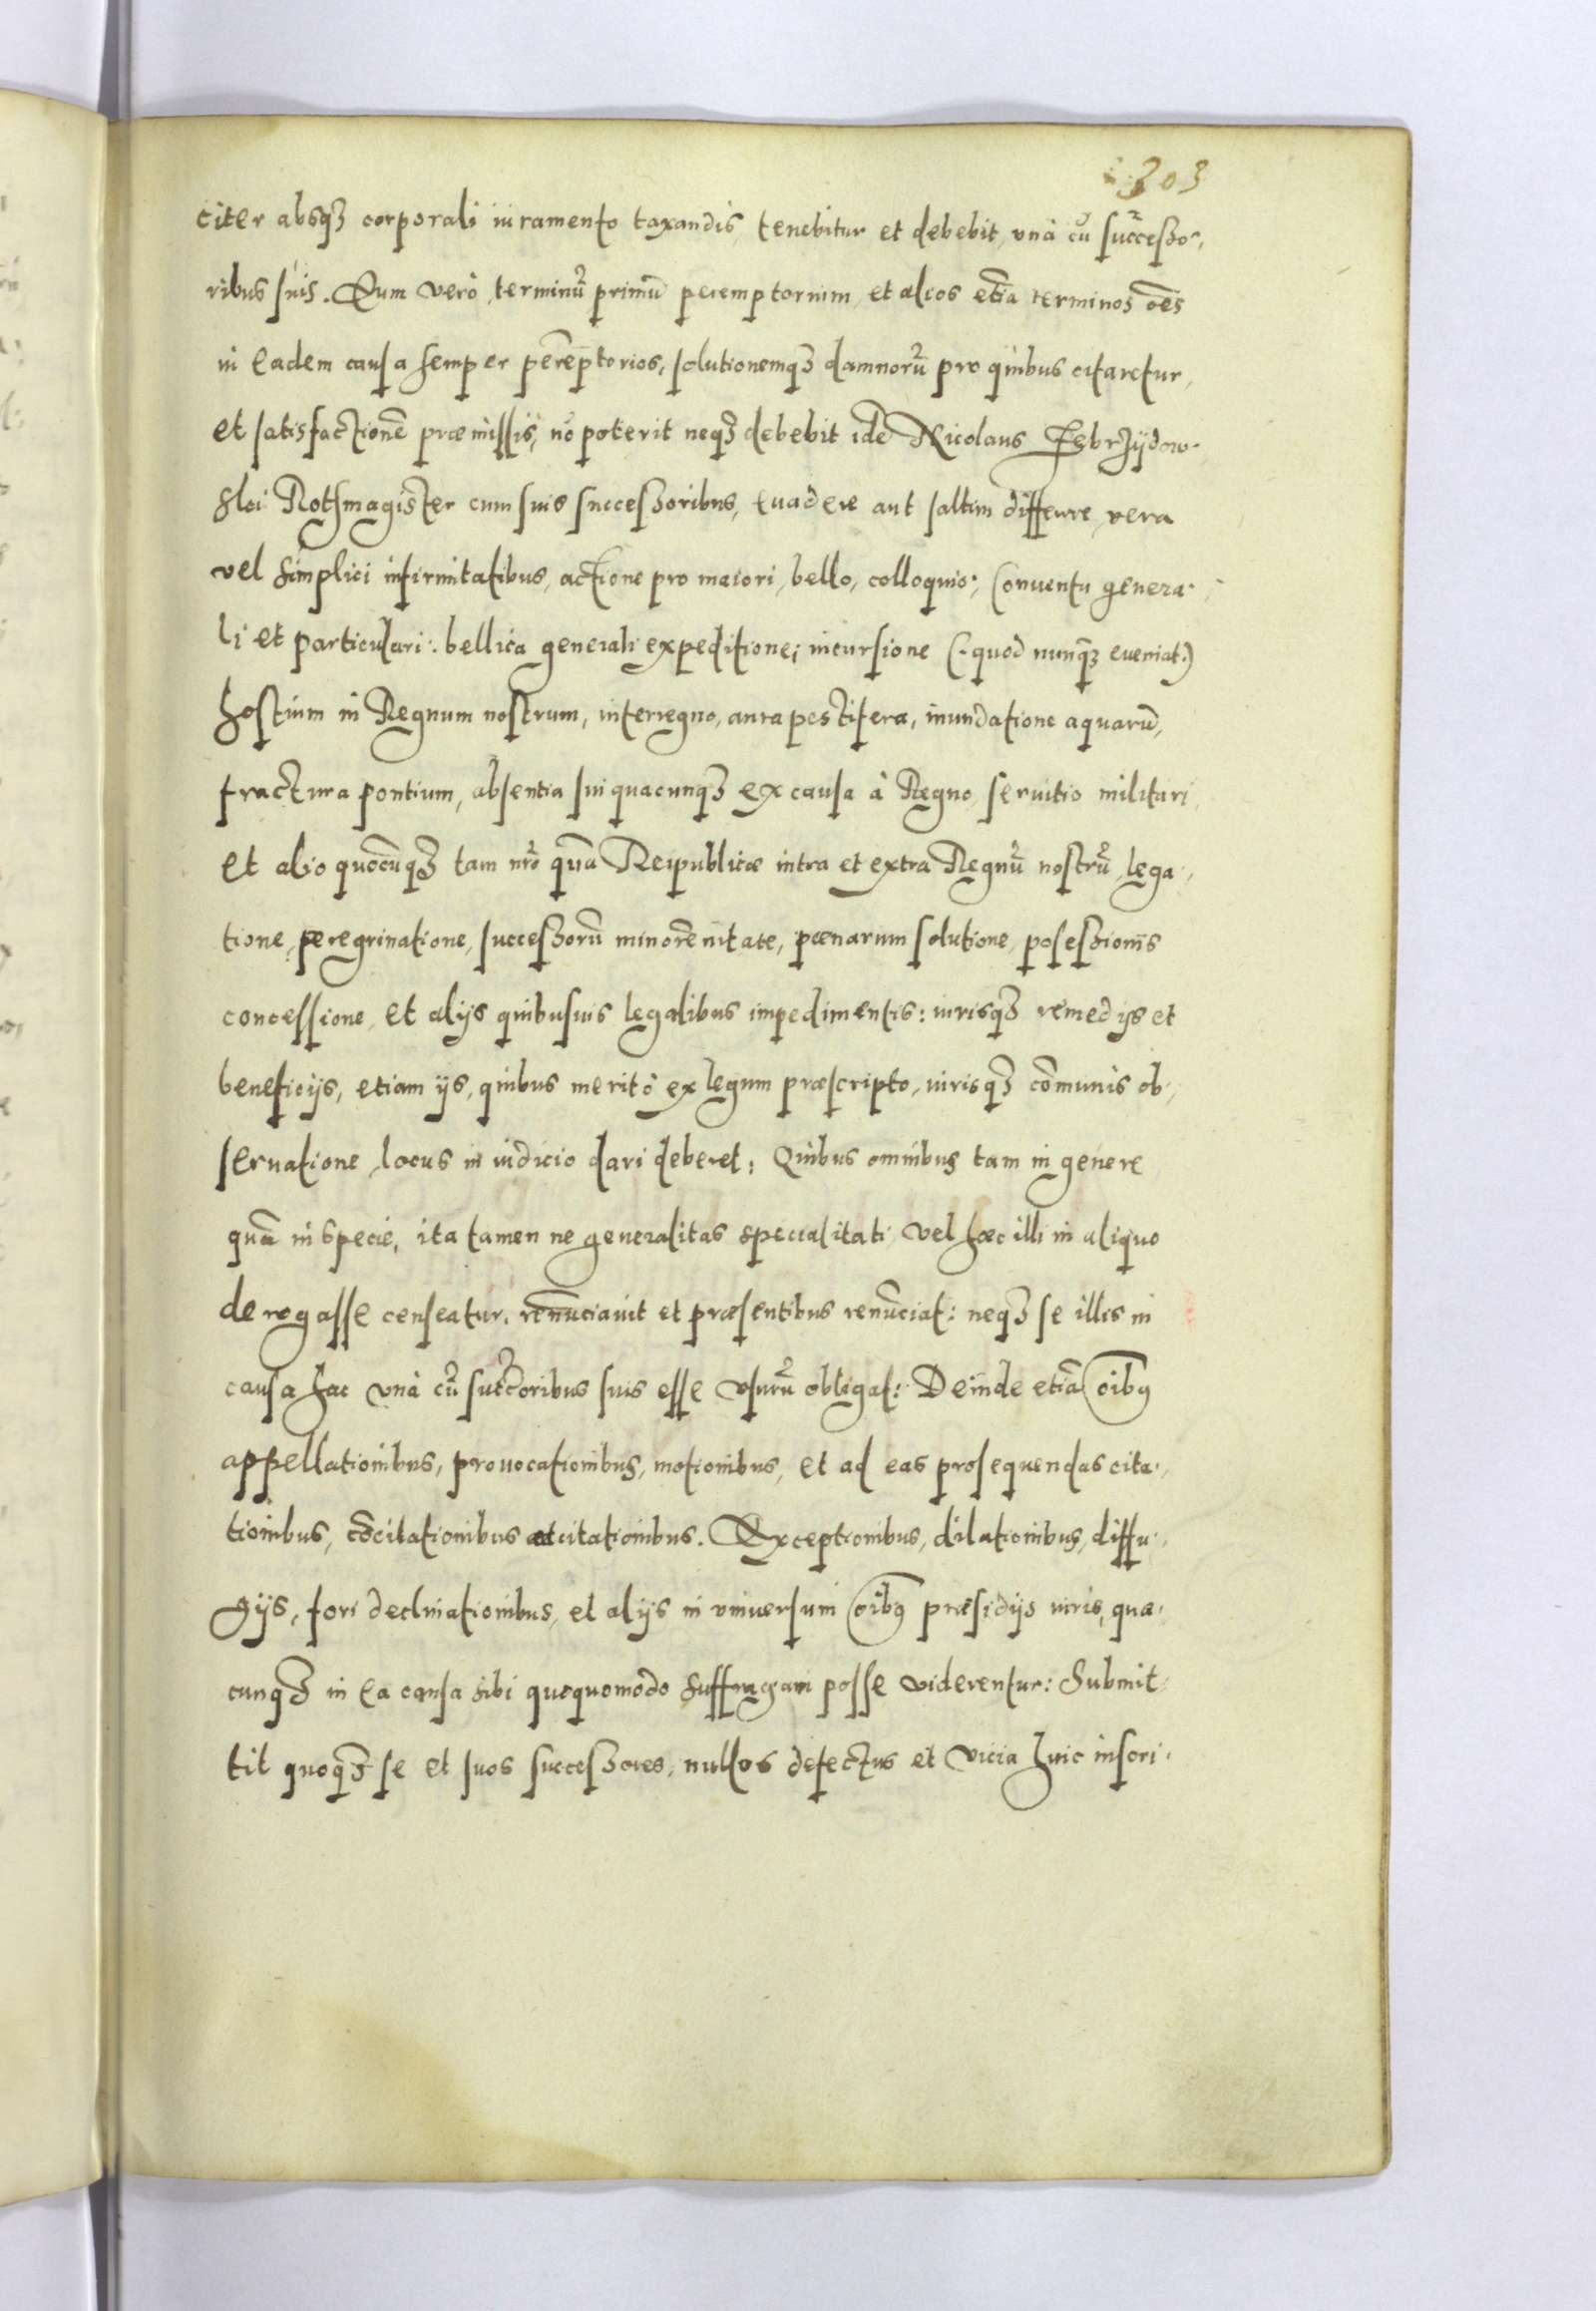 303
citer absqꝫ corporali iuramento taxandis tenebitur et debebit, vnà cũ successo-
ribus suis. Eum verò terminũ primũ peremptorium, et alios etiã terminos oẽs
in eadem causa semper perẽptorios, solutionemqꝫ damnorũ pro quibus citaretur,
et satisfactionẽ præmissis, nõ poterit neqꝫ debebit idẽ Nicolaus Zebrzÿdow-
skj Rothmagister cum suis successoribus, euadere aut saltim differre, vera
vel simplici infirmitatibus, actione pro maiori, bello, colloquio, Conuentu genera-
li et particulari: bellica generali expeditione; incursione (: quod nunqꝫ eueniat:)
hostium in Regnum nostrum, interregno, aura pestifera, inundatione aquarũ,
fractura pontium, absentia sui quacunqꝫ ex causa à Regno, seruitio militari
et alio quocũqꝫ tam nrõ quã Reipublicæ intra et extra Regnũ nostrũ, lega-
tione, peregrinatione, successorũ minorẽnitate, pœnarum solutione, posessionis
concessione, et alijs quibusuis legalibus impedimentis: iurisqꝫ remedijs et
beneficijs, etiam ijs, quibus meritò ex legum præscripto, iurisqꝫ cõmunis ob-
seruatione, locus in iudicio dari deberet: Quibus omnibus tam in genere
quã in specie, ita tamen ne generalitas specialitati vel hæc illi in aliquo
derogasse censeatur, renũciauit et præsentibus renũciat: neqꝫ se illis in
causa hac vnà cũ succ̃oribus suis esse vsurũ obligat: Deinde etiã oĩbꝰ
appellationibus, prouocationibus, motionibus, et ad eas prosequendas cita-
tionibus, cõcitationibus accitationibus. Exceptionibus, dilationibus, diffu-
gijs, fori declinationibus, et alijs in vniuersum oĩbꝰ præsidijs iuris, quæ-
cunqꝫ in ea causa sibi quoquomodo suffragari posse viderentur: Submit-
tit quoqꝫ se et suos successores, nullos defectus et vicia huic inscri-